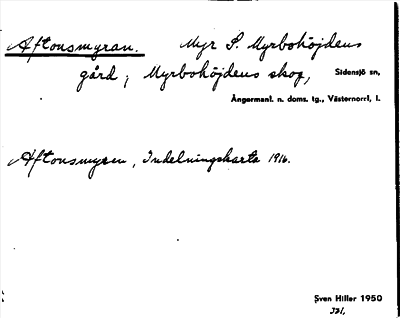 Aftonsmyran. Myr S. Myrbohöjdens
gård; Myrbohöjdens skog, Sidensjö sn,
Ångermanl. n. doms. tg., Västernorrl, l.
Aftonsmyren, Indelningskarta 1916.
Sven Hiller 1950